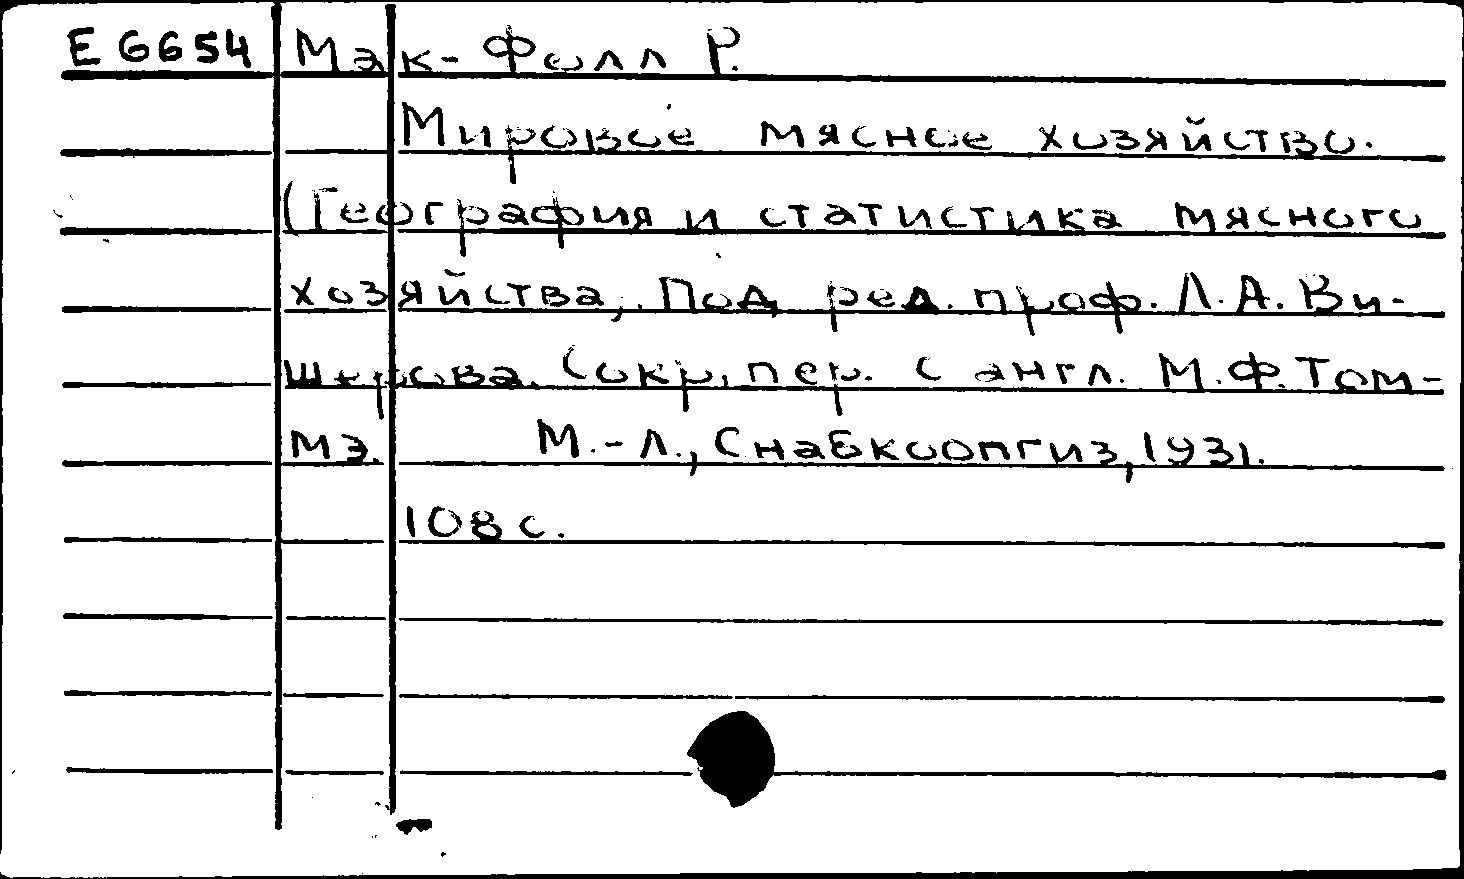 Е 6654 Мак-Фолл Р.
Мировое мясное хозяйство.
(География и статистика мясного
хозяйства, Под ред. проф. Л.А. Ви-
шерова. Сокр. пер. с англ. М.Ф. Том-
мэ. М.-Л., Снабкоопгиз, 1931.
108 с.